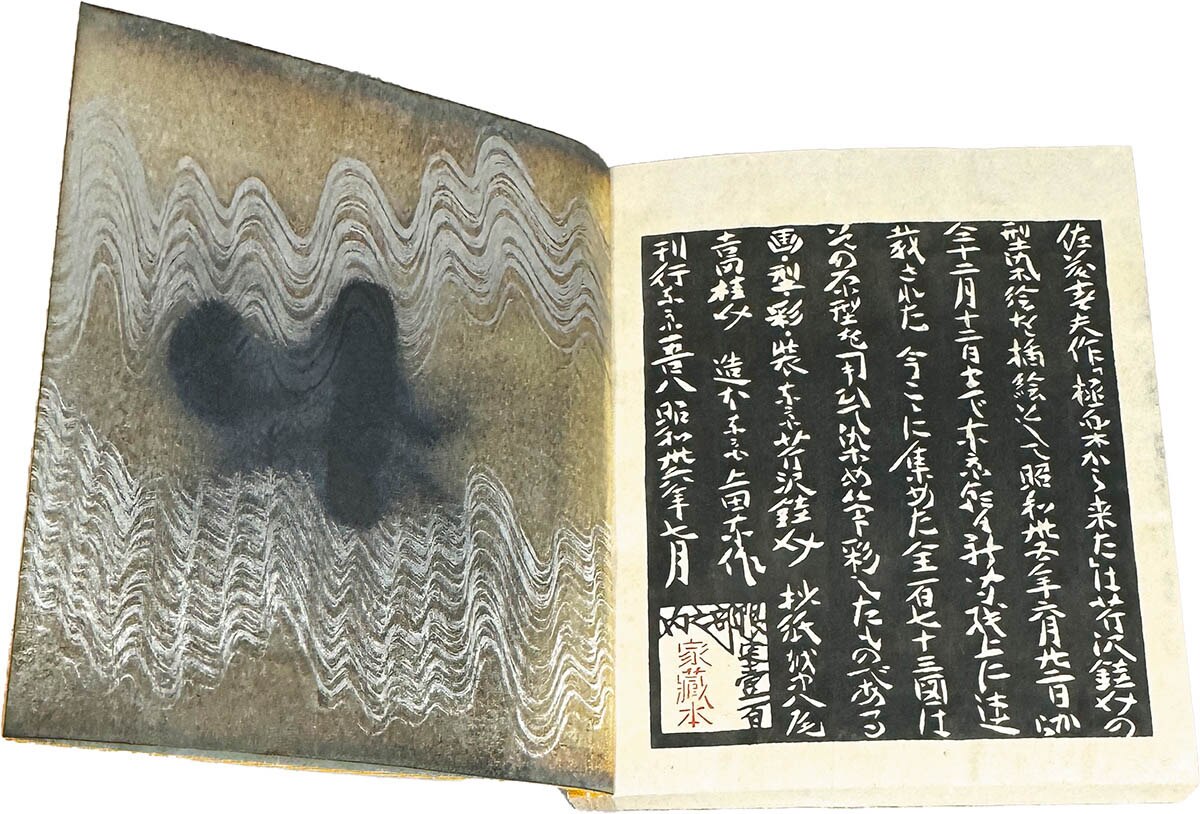 佐藤春夫作「極楽から来た」は芹沢銈介の
型染絵を挿絵として昭和卅五年六月廿一日
仝年十二月十二日まで東京 紙上に連
載された 今ここに集めた全一百七十三図は
その原型を用ひて染め筆彩したものである
画・型・彩・装 東京芹沢銈介 抄紙越中八尾
吉田桂介 造本東京上田 作
刊行東京吾八 昭和卅六年七月
限定壹百
部之内
家蔵本